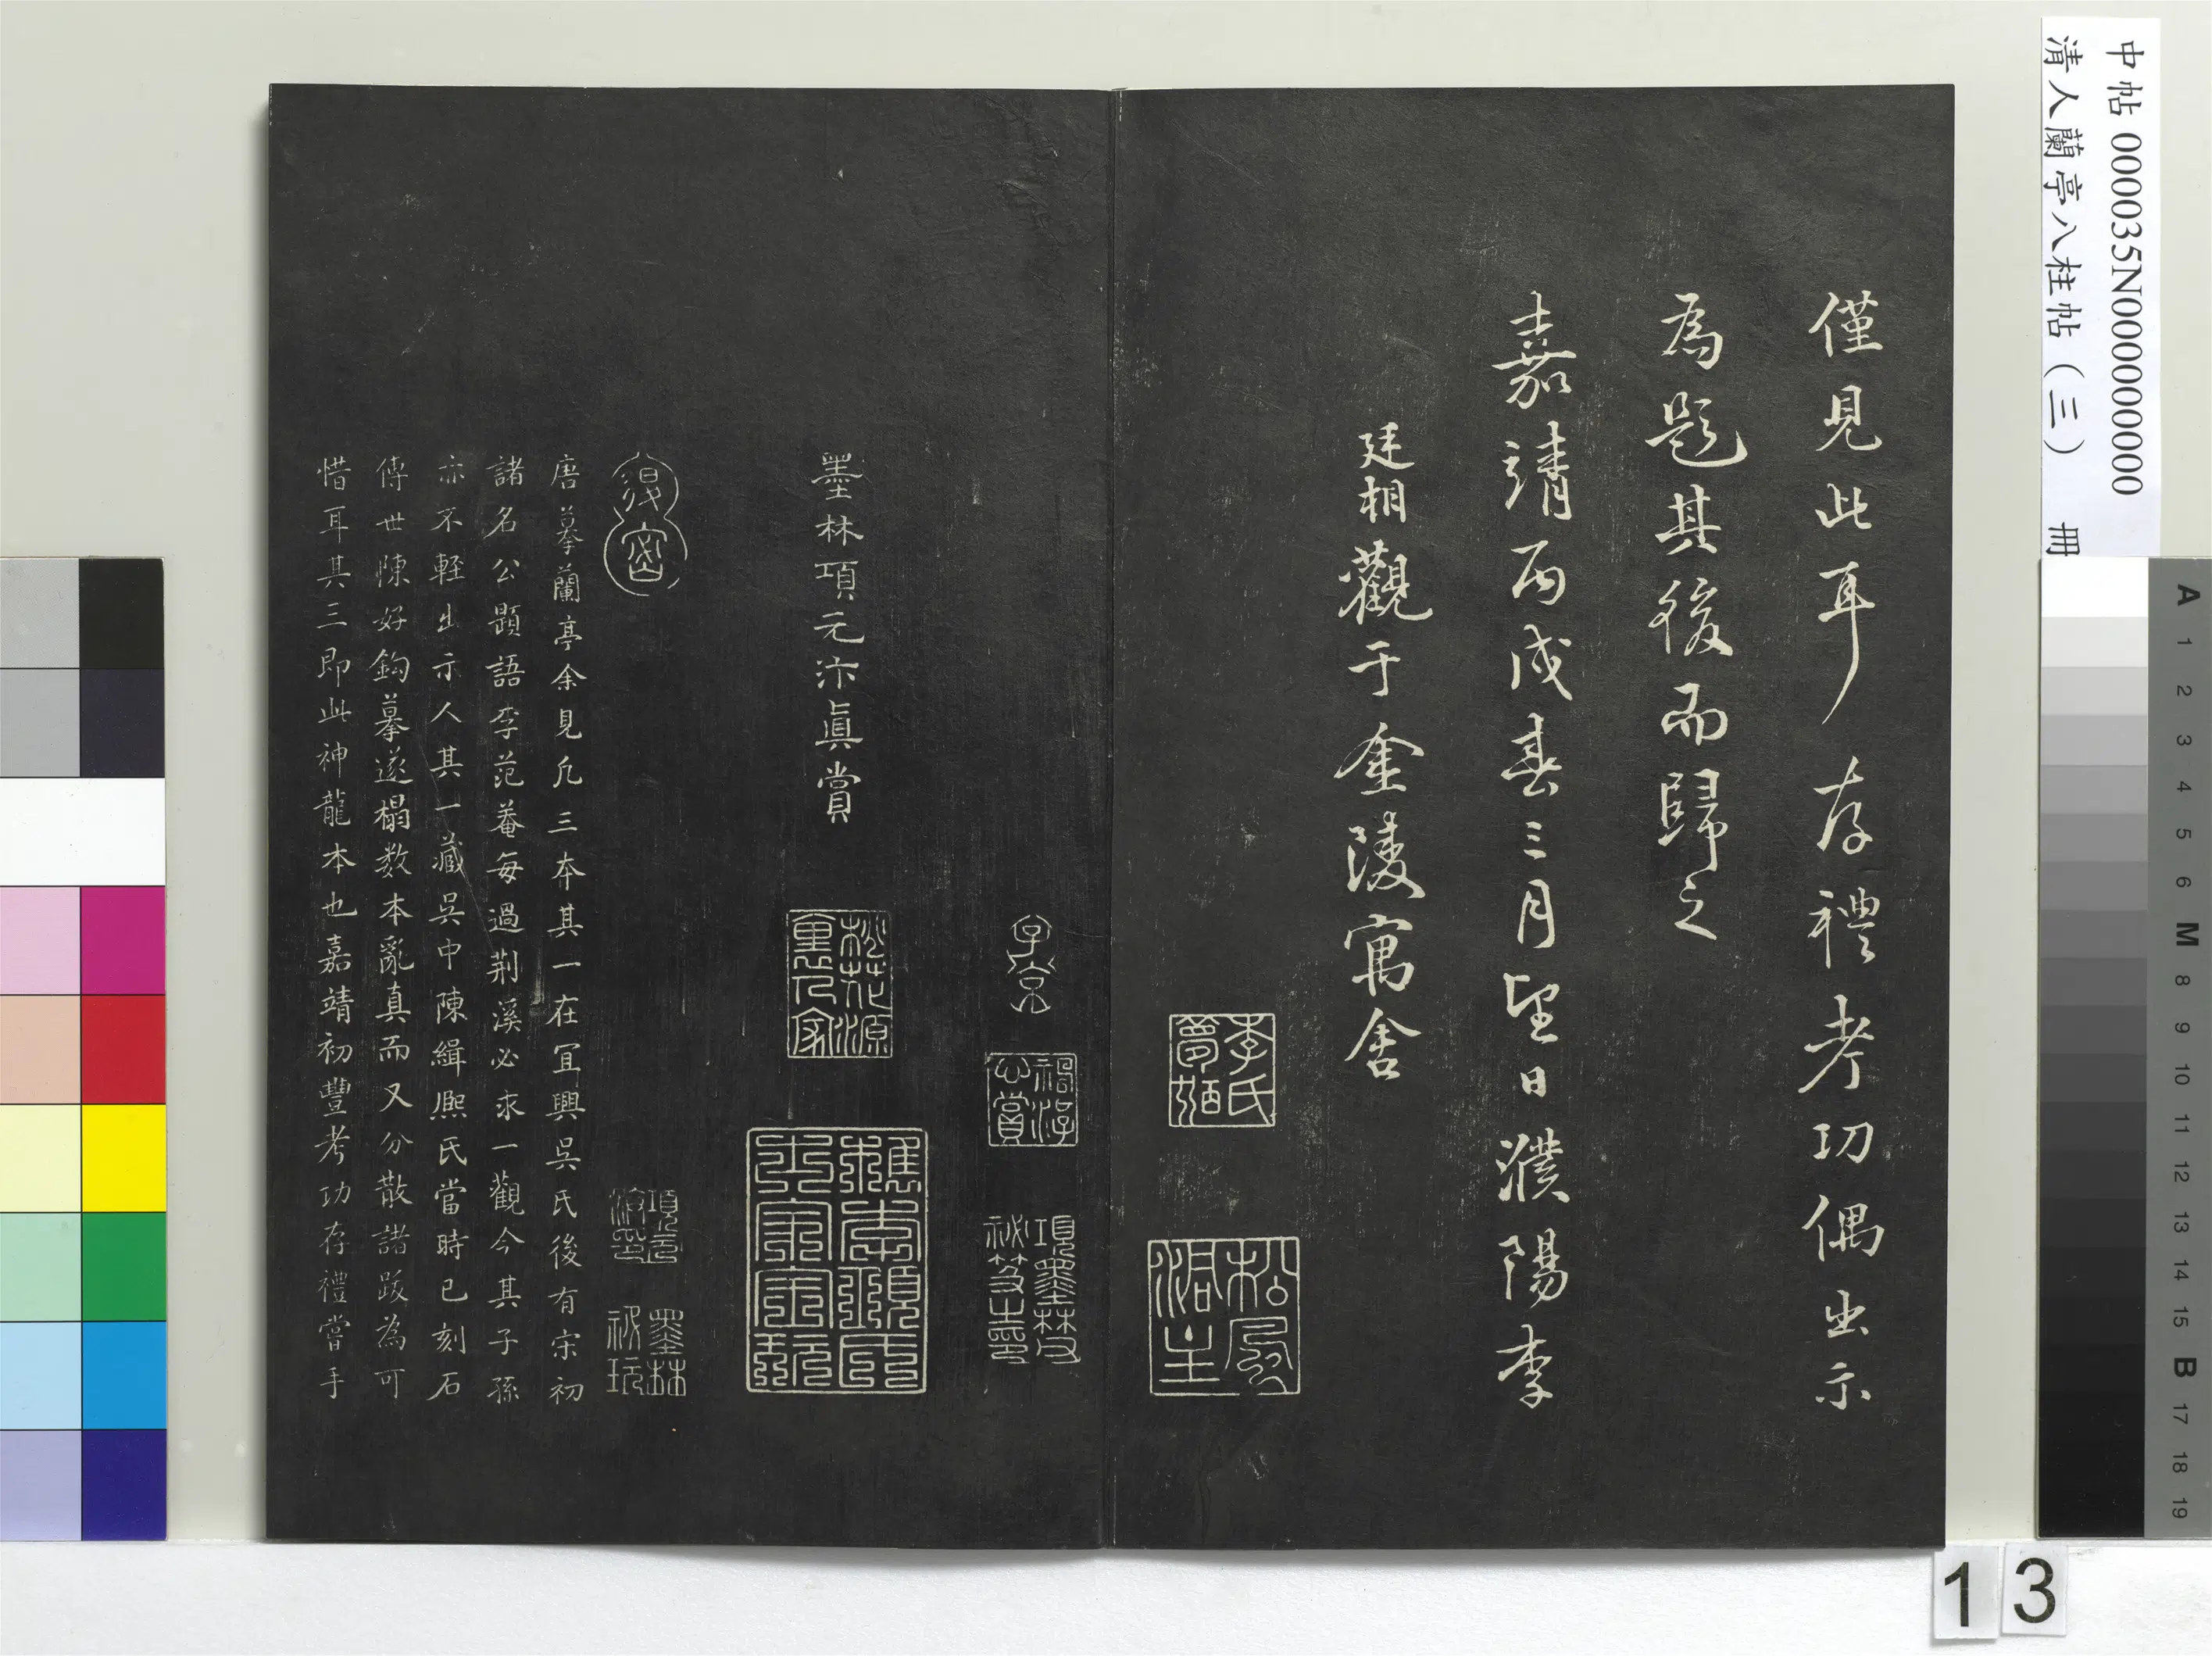 中帖 000035N000000000
清人蘭亭八柱帖（三） 冊
僅見此耳存禮考功偶出示
為題其後而歸之
嘉靖丙戌春三月望日濮陽李
廷相觀于金陵寓舍
李氏夢弼
子京
神游心賞
項墨林父祕笈之印
墨林項元汴真賞
桃花源裏人家
檇李項氏士家寶玩
退密
項元汴印
墨林祕玩
唐摹蘭亭余見凡三本其一在宜興吳氏後有宋初
諸名公題語李范菴每過荆溪必求一觀今其子孫
亦不輕出示人其一藏吳中陳緝熙氏當時已刻石
傳世陳好鈎摹遂搨数本亂真而又分散諸跋為可
惜耳其三即此神龍本也嘉靖初豐考功存禮嘗手
A 1 2 3 4 5 6 M 8 9 10 11 12 13 14 15 B 17 18 19
1 3